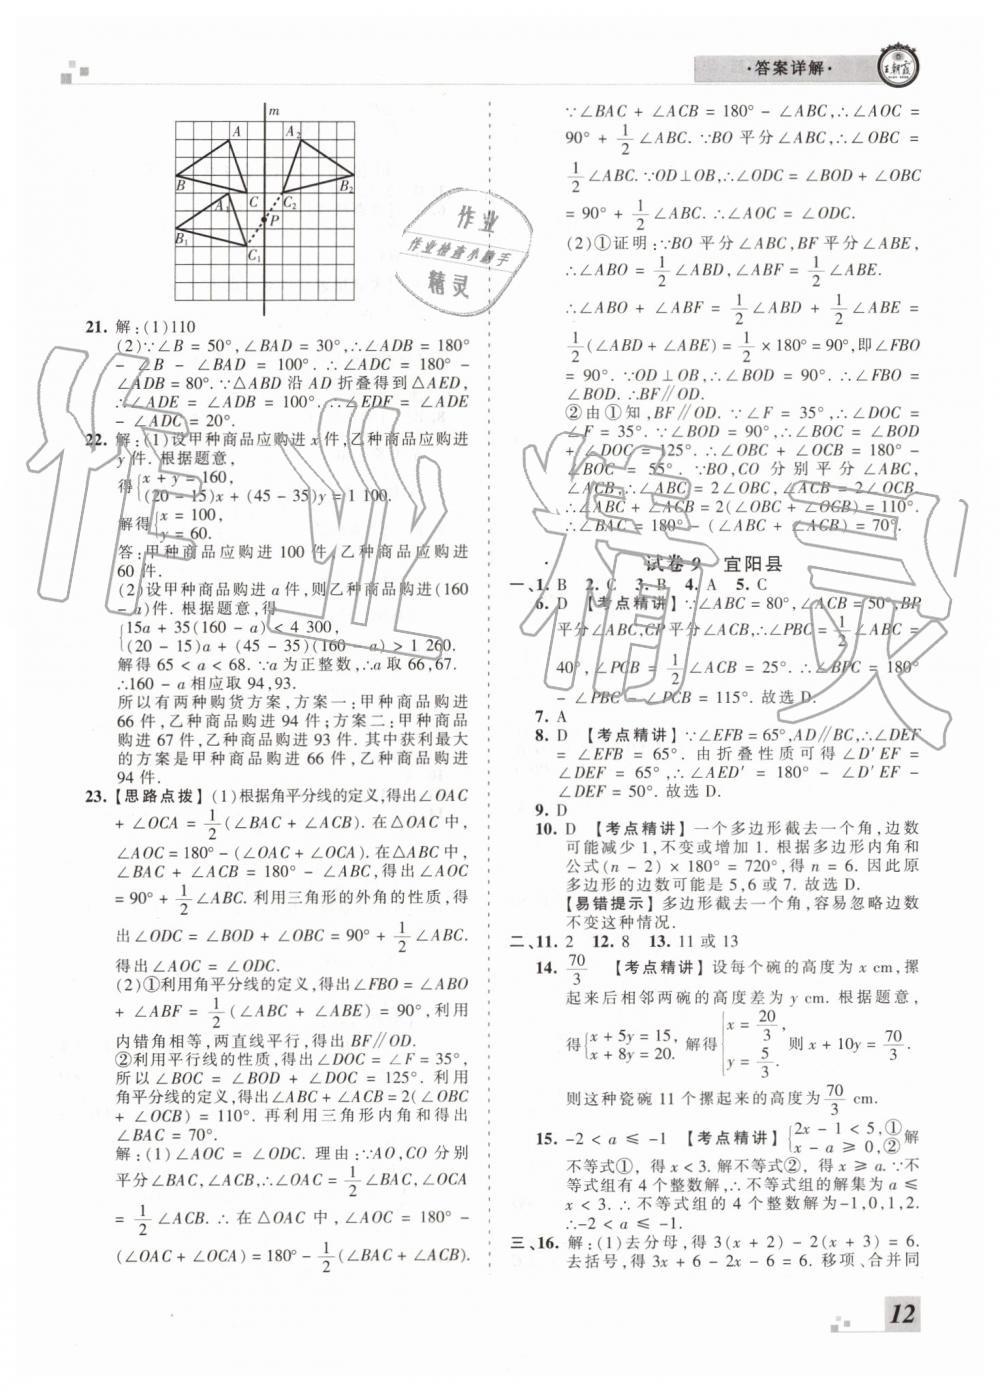 ·答案详解·
王朝霞
m
A
A₂
B
C
C₂
B₂
A₁
P
B₁
C₁
21. 解:(1)110
(2)∵∠B = 50°,∠BAD = 30°,∴∠ADB = 180°
- ∠B - ∠BAD = 100°. ∴∠ADC = 180° -
∠ADB = 80°. ∵△ABD 沿 AD 折叠得到△AED,
∴∠ADE = ∠ADB = 100°. ∴∠EDF = ∠ADE
- ∠ADC = 20°.
22. 解:(1)设甲种商品应购进 x 件,乙种商品应购进
y 件. 根据题意,
得{x + y = 160,
(20 - 15)x + (45 - 35)y = 1 100.
解得{x = 100,
y = 60.
答:甲种商品应购进 100 件,乙种商品应购进
60 件.
(2)设甲种商品购进 a 件,则乙种商品购进(160
- a)件. 根据题意,得
{15a + 35(160 - a) < 4 300,
(20 - 15)a + (45 - 35)(160 - a) > 1 260.
解得 65 < a < 68. ∵a 为正整数,∴a 取 66,67.
∴160 - a 相应取 94,93.
所以有两种购货方案,方案一:甲种商品购进
66 件,乙种商品购进 94 件;方案二:甲种商品
购进 67 件,乙种商品购进 93 件. 其中获利最大
的方案是甲种商品购进 66 件,乙种商品购进
94 件.
23. 【思路点拨】(1)根据角平分线的定义,得出∠OAC
+ ∠OCA = 1/2(∠BAC + ∠ACB). 在△OAC 中,
∠AOC = 180° - (∠OAC + ∠OCA). 在△ABC 中,
∠BAC + ∠ACB = 180° - ∠ABC,得出∠AOC
= 90° + 1/2∠ABC. 利用三角形的外角的性质,得
出∠ODC = ∠BOD + ∠OBC = 90° + 1/2∠ABC.
得出∠AOC = ∠ODC.
(2)①利用角平分线的定义,得出∠FBO = ∠ABO
+ ∠ABF = 1/2(∠ABC + ∠ABE) = 90°,利用
内错角相等,两直线平行,得出 BF∥OD.
②利用平行线的性质,得出∠DOC = ∠F = 35°,
所以∠BOC = ∠BOD + ∠DOC = 125°. 利用
角平分线的定义,得出∠ABC + ∠ACB = 2(∠OBC
+ ∠OCB) = 110°. 再利用三角形内角和得出
∠BAC = 70°.
解:(1)∠AOC = ∠ODC. 理由:∵AO,CO 分别
平分∠BAC,∠ACB,∴∠OAC = 1/2∠BAC,∠OCA
= 1/2∠ACB. ∴ 在△OAC 中,∠AOC = 180° -
(∠OAC + ∠OCA) = 180° - 1/2(∠BAC + ∠ACB).
∵∠BAC + ∠ACB = 180° - ∠ABC,∴∠AOC =
90° + 1/2∠ABC. ∵BO 平分∠ABC,∴∠OBC =
1/2∠ABC. ∵OD⊥OB,∴∠ODC = ∠BOD + ∠OBC
= 90° + 1/2∠ABC. ∴∠AOC = ∠ODC.
(2)①证明:∵BO 平分∠ABC,BF 平分∠ABE,
∴∠ABO = 1/2∠ABD,∠ABF = 1/2∠ABE.
∴∠ABO + ∠ABF = 1/2∠ABD + 1/2∠ABE =
1/2(∠ABD + ∠ABE) = 1/2 × 180° = 90°,即∠FBO
= 90°. ∵OD⊥OB,∴∠BOD = 90°. ∴∠FBO =
∠BOD. ∴BF∥OD.
②由①知,BF∥OD. ∵∠F = 35°,∴∠DOC =
∠F = 35°. ∵∠BOD = 90°,∴∠BOC = ∠BOD
+ ∠DOC = 125°. ∴∠OBC + ∠OCB = 180° -
∠BOC = 55°. ∵BO,CO 分别平分∠ABC,
∠ACB,∴∠ABC = 2∠OBC,∠ACB = 2∠OCB.
∴∠ABC + ∠ACB = 2(∠OBC + ∠OCB) = 110°.
∴∠BAC = 180° - (∠ABC + ∠ACB) = 70°.
试卷 9 宜阳县
一、1. B 2. C 3. B 4. A 5. C
6. D 【考点精讲】∵∠ABC = 80°,∠ACB = 50°,BP
平分∠ABC,CP 平分∠ACB,∴∠PBC = 1/2∠ABC =
40°,∠PCB = 1/2∠ACB = 25°. ∴∠BPC = 180°
- ∠PBC - ∠PCB = 115°. 故选 D.
7. A
8. D 【考点精讲】∵∠EFB = 65°,AD∥BC,∴∠DEF
= ∠EFB = 65°. 由折叠性质可得∠D′EF =
∠DEF = 65°,∴∠AED′ = 180° - ∠D′EF -
∠DEF = 50°. 故选 D.
9. D
10. D 【考点精讲】一个多边形截去一个角,边数
可能减少 1,不变或增加 1. 根据多边形内角和
公式(n - 2) × 180° = 720°,得 n = 6. 因此原
多边形的边数可能是 5,6 或 7. 故选 D.
【易错提示】多边形截去一个角,容易忽略边数
不变这种情况.
二、11. 2 12. 8 13. 11 或 13
14. 70/3 【考点精讲】设每个碗的高度为 x cm,摞
起来后相邻两碗的高度差为 y cm. 根据题意,
得{x + 5y = 15, x + 8y = 20. 解得{x = 20/3, y = 5/3. 则 x + 10y = 70/3.
则这种瓷碗 11 个摞起来的高度为 70/3 cm.
15. -2 < a ≤ -1 【考点精讲】{2x - 1 < 5,① x - a ≥ 0,② 解
不等式①, 得 x < 3. 解不等式②, 得 x ≥ a. ∵不
等式组有 4 个整数解,∴不等式组的解集为 a ≤
x < 3. ∴不等式组的 4 个整数解为-1,0,1,2.
∴-2 < a ≤ -1.
三、16. 解:(1)去分母,得 3(x + 2) - 2(x + 3) = 6.
去括号,得 3x + 6 - 2x - 6 = 6. 移项、合并同
12
作业
作业检查小助手
精灵
作业精灵